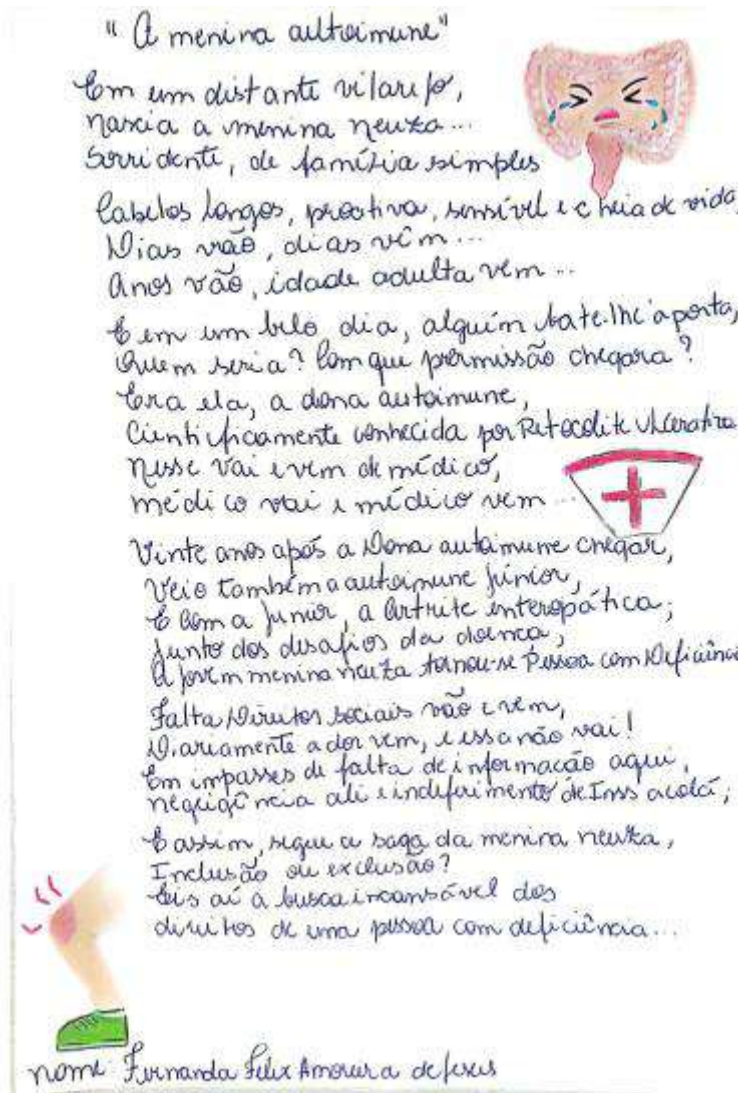 "A menina autoimune"
Em um distante vilarejo,
nascia a menina neuza...
Sorridente, de família simples
Cabelos longos, proativa, sensível e cheia de vida,
Dias vão, dias vêm...
Anos vão, idade adulta vem...
E em um belo dia, alguém bate-lhe a porta,
Quem seria? Com que permissão chegara?
Era ela, a dona autoimune,
Cientificamente conhecida por Retocolite Ulcerativa
Nesse vai e vem de médico,
médico vai e médico vem...
Vinte anos após a Dona autoimune chegar,
Veio também a autoimune júnior,
E com a junior, a Artrite enteropática;
Junto dos desafios da doença,
A jovem menina neuza tornou-se Pessoa com Deficiência
Falta Direitos sociais vão e vem,
Diariamente a dor vem, e essa não vai!
Em impasses de falta de informação aqui,
negligência ali e indeferimento de Inss acolá;
E assim, segue a saga da menina neuza,
Inclusão ou exclusão?
Eis aí a busca incansável dos
direitos de uma pessoa com deficiência...
nome: Fernanda Felix Amorim de Jesus